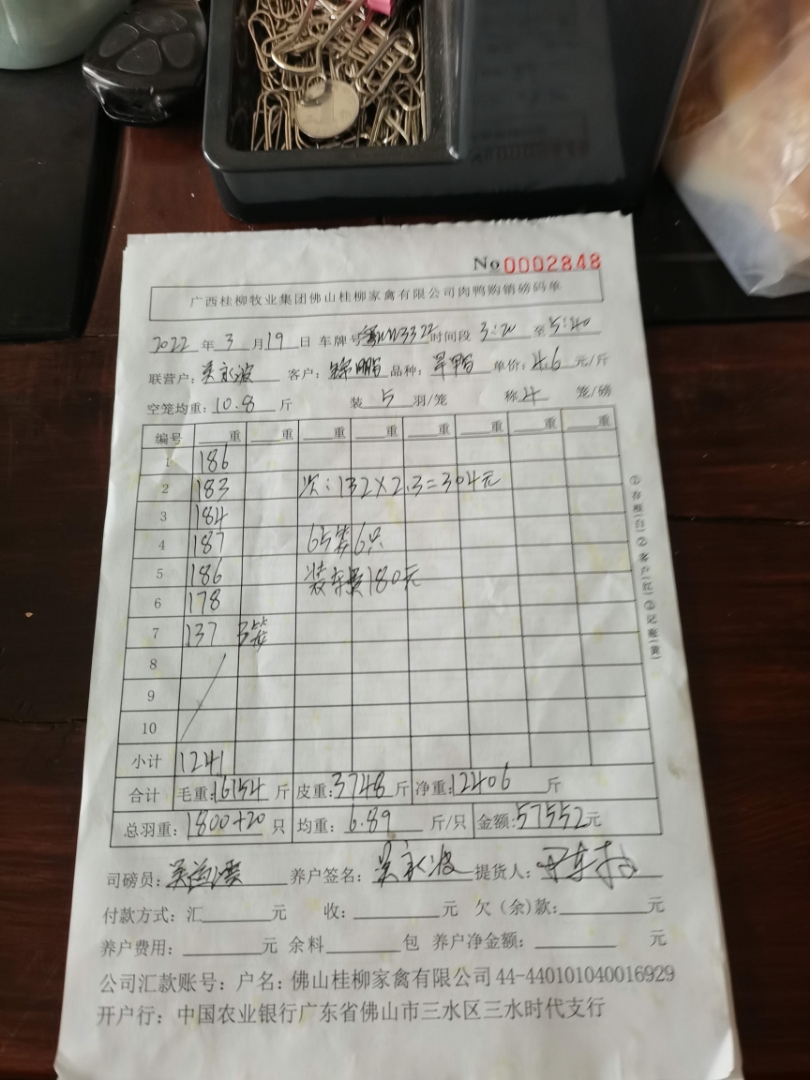 No 0002848
广西桂柳牧业集团佛山桂柳家禽有限公司肉鸭购销磅码单
2022 年 3 月 19 日 车牌号 时间段 3:20 至 5:40
联营户: 吴永波 客户: 品种: 旱鸭 单价: 4.6 元/斤
空笼均重: 10.8 斤 装 5 羽/笼 称 4 笼/磅
编号 重 重 重 重 重 重 重 重
1 186
2 183 次: 132×2.3=304元
3 184
4 187 6只
5 186 装车费180元
6 178
7 137 3笼
8
9
10
小计 1241
合计 毛重: 16154 斤 皮重: 3748 斤 净重: 12406 斤
总羽重: 1800+20 只 均重: 6.89 斤/只 金额: 57552元
司磅员: 养户签名: 吴永波 提货人:
付款方式: 汇 元 收: 元 欠(余)款: 元
养户费用: 元 余料 包 养户净金额: 元
公司汇款账号: 户名: 佛山桂柳家禽有限公司 44-440101040016929
开户行: 中国农业银行广东省佛山市三水区三水时代支行
①存根(白)②客户(红)③记账(黄)